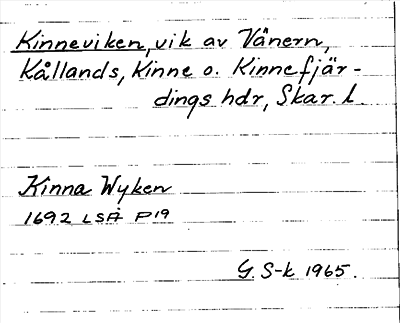 Kinneviken, vik av Vänern,
Kållands, Kinne o. Kinnefjär-
dings hdr, Skar. l.
Kinna Wyken
1692 LSA P19
G. S-k 1965.